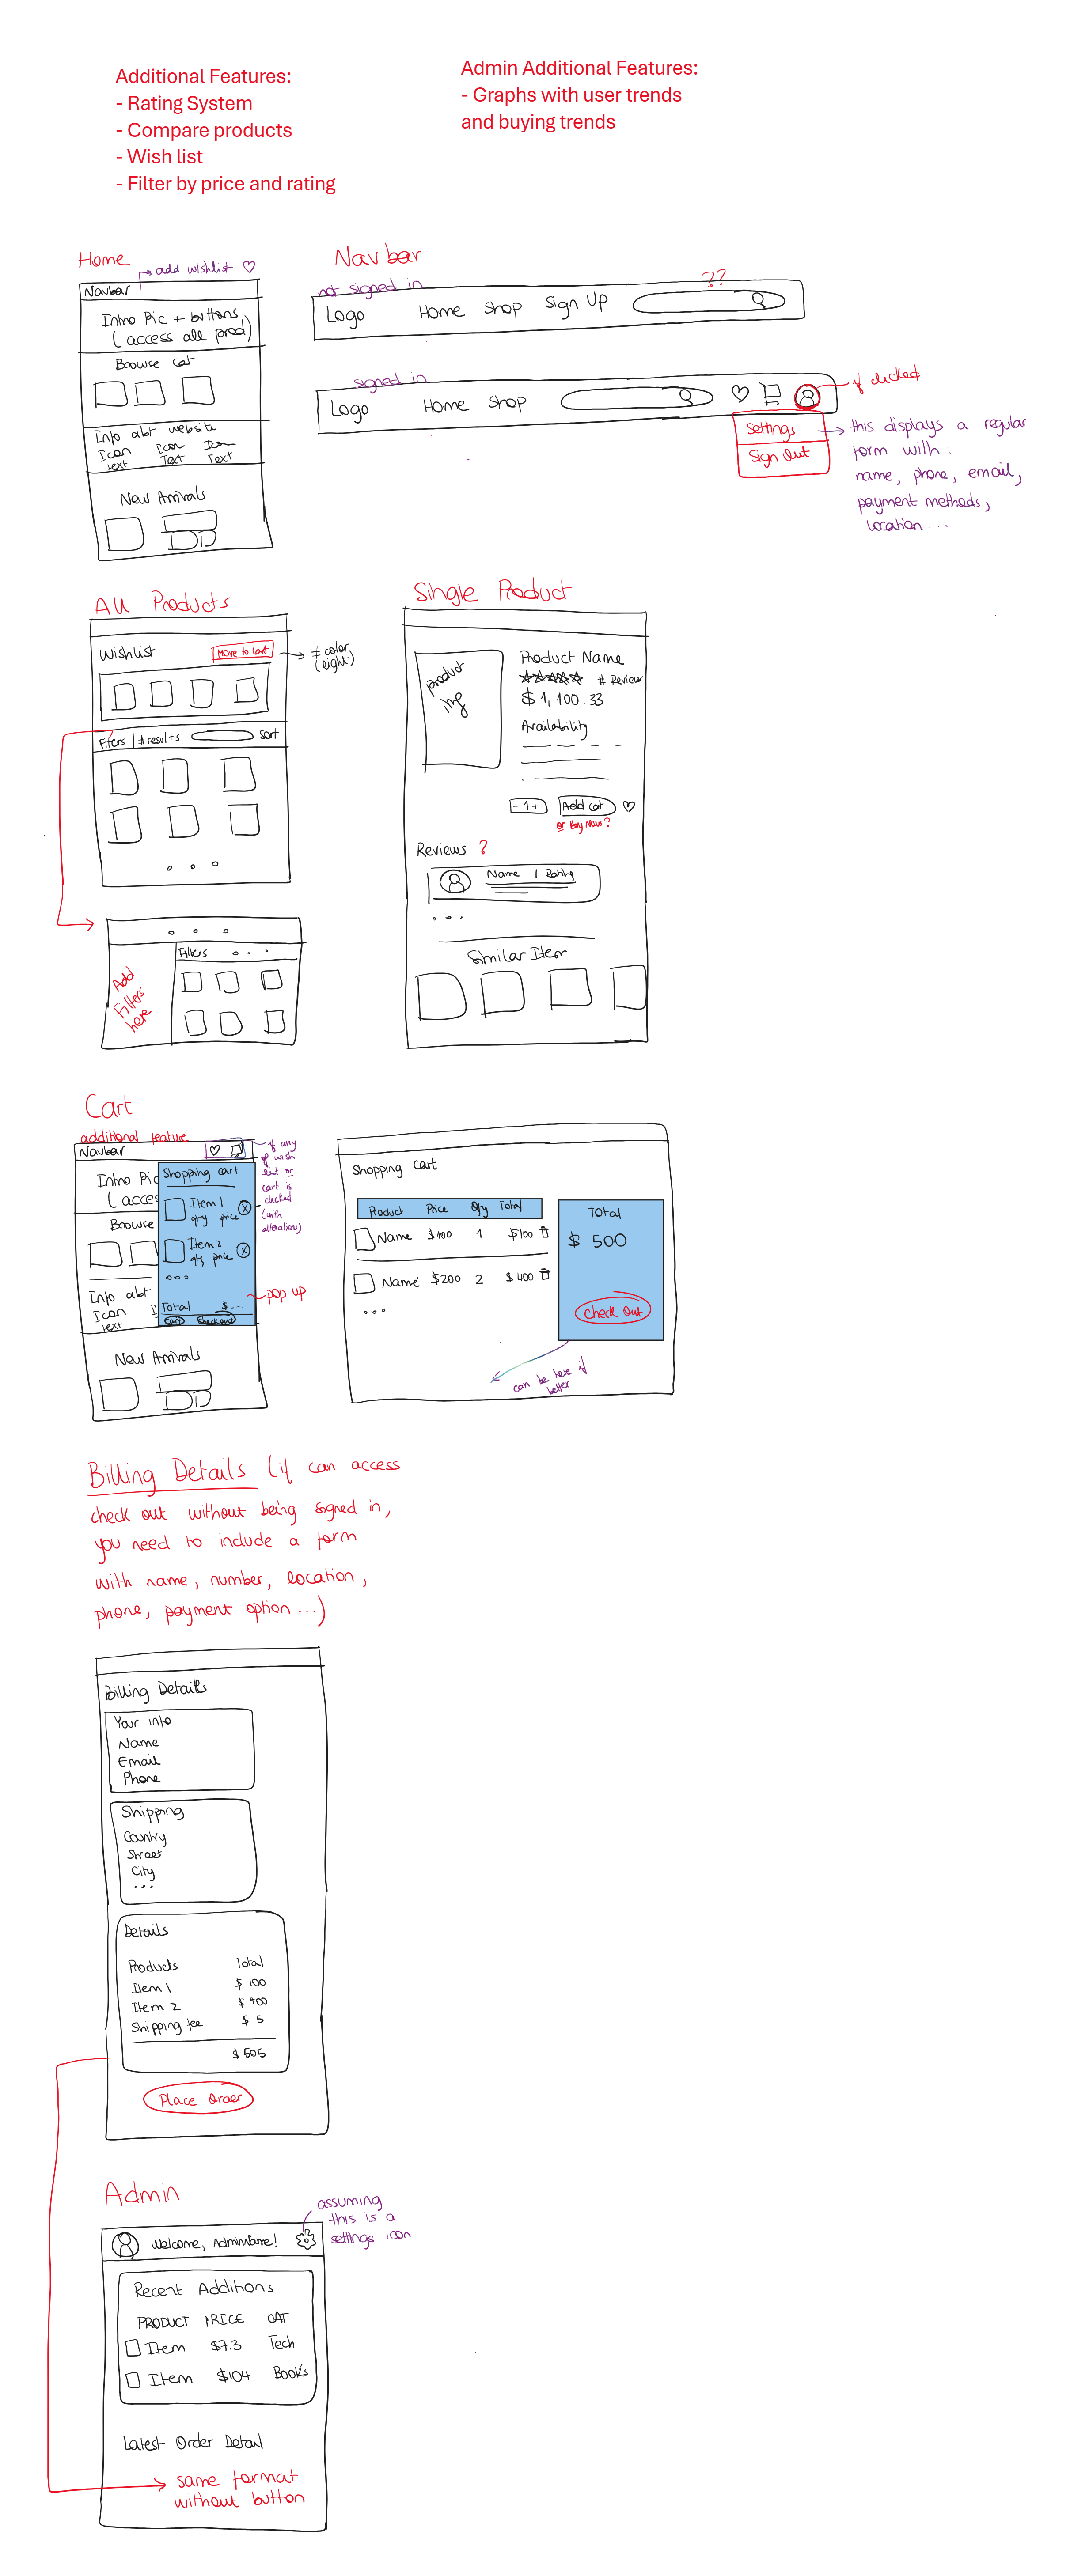 Additional Features:
- Rating System
- Compare products
- Wish list
- Filter by price and rating
Admin Additional Features:
- Graphs with user trends
and buying trends
Home
add wishlist
Navbar
Intro Pic + buttons
(access all prod)
Browse cat
Info abt website
Icon Icon Icon
text Text Text
New Arrivals
Navbar
not signed in
??
Logo Home Shop Sign Up
signed in
Logo Home Shop
if clicked
Settings
Sign Out
this displays a regular
form with:
name, phone, email,
payment methods,
location...
All Products
Wishlist Move to Cart
≠ color
(light)
Filters | # results Sort
Filters
Add
Filters
here
Single Product
product
img
Product Name
# Review
$ 1,100.33
Availability
- 1 + Add cart
or Buy Now?
Reviews ?
Name | Rating
Similar Item
Cart
additional feature
Navbar
if any
of wish
list or
cart is
clicked
(with
alterations)
Intro Pic
(acces
Browse
Info abt
Icon I
text
New Arrivals
Shopping cart
Item 1
qty price X
Item 2
qty price X
Total $...
Cart Checkout
pop up
Shopping Cart
Product Price Qty Total
Name $100 1 $100
Name $200 2 $400
Total
$ 500
Check Out
can be here if
better
Billing Details (if can access
check out without being signed in,
you need to include a form
with name, number, location,
phone, payment option...)
Billing Details
Your info
Name
Email
Phone
Shipping
Country
Street
City
...
Details
Products Total
Item 1 $ 100
Item 2 $ 400
Shipping fee $ 5
$ 505
Place Order
Admin
assuming
this is a
settings icon
Welcome, AdminName!
Recent Additions
PRODUCT PRICE CAT
Item $7.3 Tech
Item $104 Books
Latest Order Detail
same format
without button